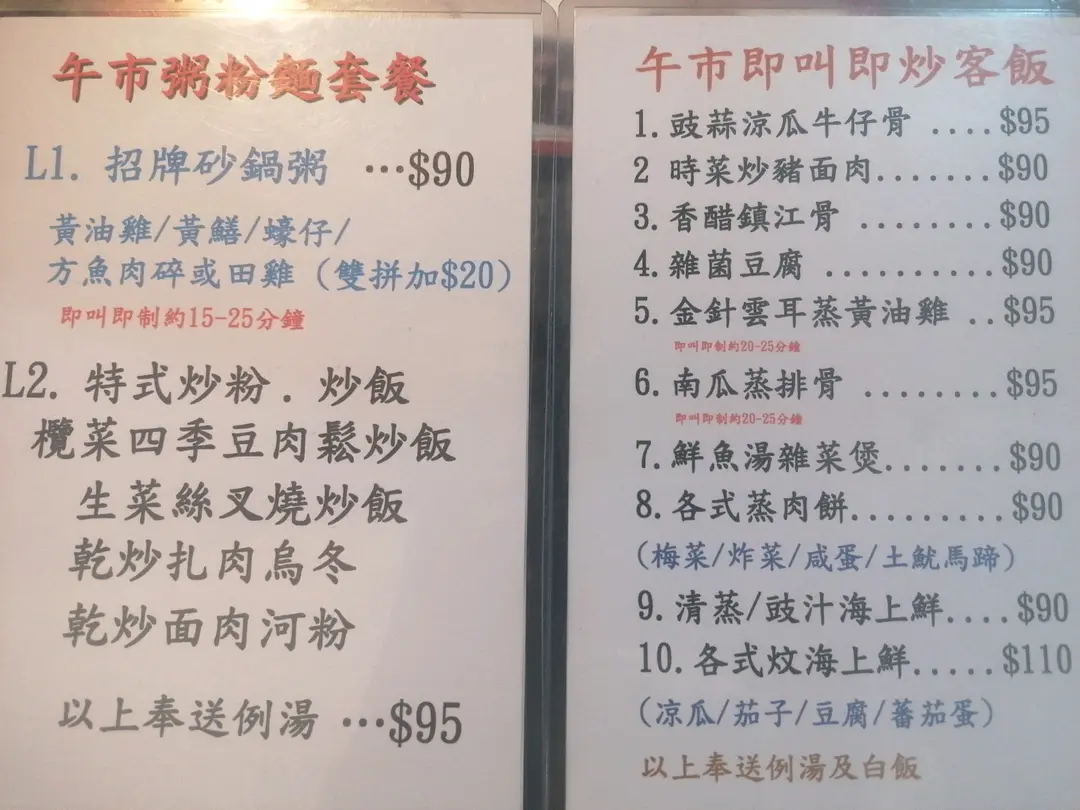 午市粥粉麵套餐
L1. 招牌砂鍋粥 …$90
黃油雞/黃鱔/蠔仔/
方魚肉碎或田雞 (雙拼加$20)
即叫即制約15-25分鐘
L2. 特式炒粉 . 炒飯
欖菜四季豆肉鬆炒飯
生菜絲叉燒炒飯
乾炒扎肉烏冬
乾炒面肉河粉
以上奉送例湯 …$95
午市即叫即炒客飯
1. 豉蒜涼瓜牛仔骨 ....$95
2 時菜炒豬面肉.......$90
3. 香醋鎮江骨 ........$90
4. 雜菌豆腐 ..........$90
5. 金針雲耳蒸黃油雞 ..$95
即叫即制約20-25分鐘
6. 南瓜蒸排骨 ........$95
即叫即制約20-25分鐘
7. 鮮魚湯雜菜煲.......$90
8. 各式蒸肉餅.........$90
(梅菜/炸菜/咸蛋/土魷馬蹄)
9. 清蒸/豉汁海上鮮....$90
10. 各式炆海上鮮.....$110
(凉瓜/茄子/豆腐/蕃茄蛋)
以上奉送例湯及白飯